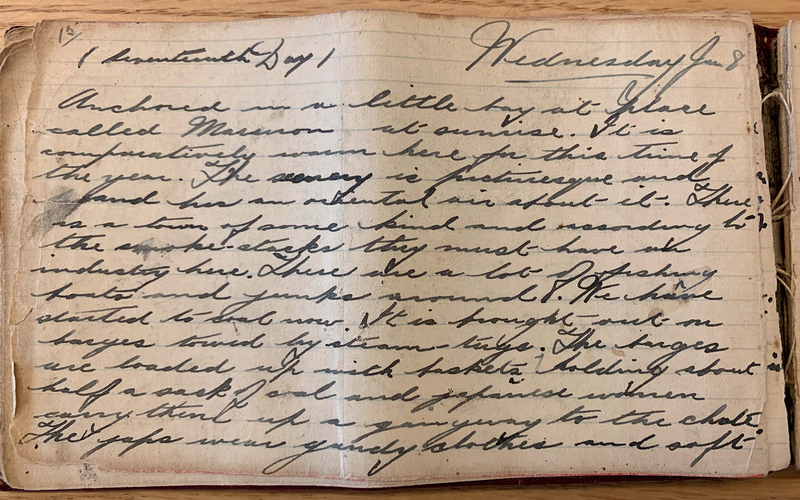 15
(Seventeenth Day) Wednesday Jan 8
Anchored in a little bay at place
called at sunrise. It is
comparatively warm here for this time of
the year. The is picturesque and
and has an oriental air about it. There
is a town of some kind and according to
the smoke-stacks they must have an
industry here. There are a lot of fishing
boats and junks around. We have
started to coal now It is brought out on
barges towed by steam-tugs. The barges
are loaded up with baskets holding about
half a sack of coal and japanese women
carry them up a gangway to the chute.
The japs wear gaudy clothes and soft